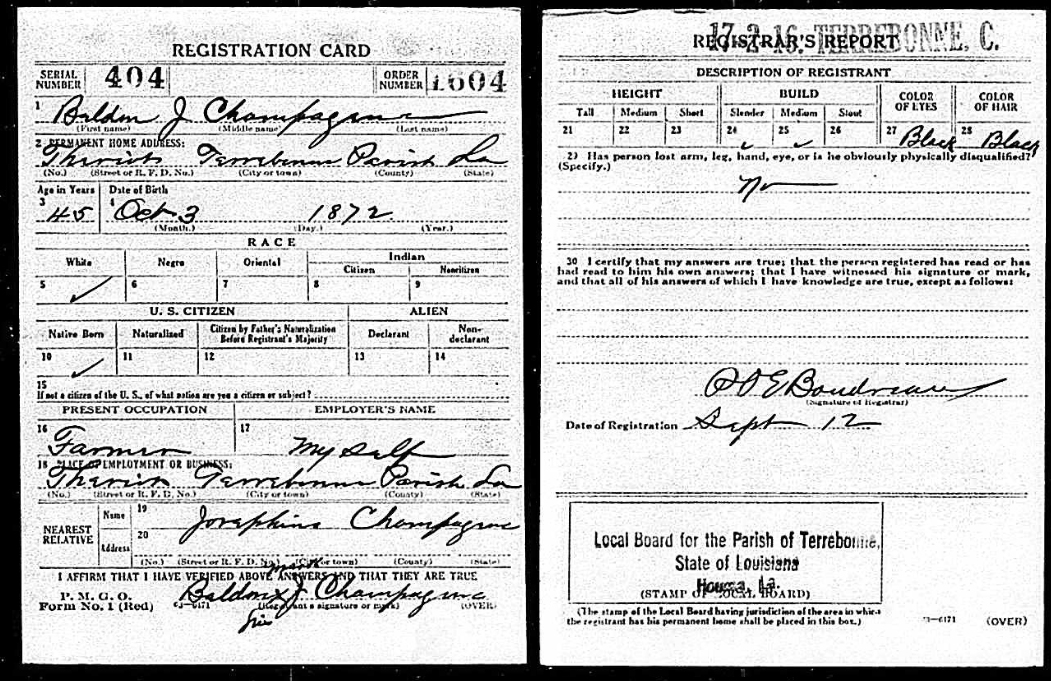 REGISTRATION CARD
SERIAL NUMBER 404 ORDER NUMBER 1604
1 Baldon J Champagne
(First name) (Middle name) (Last name)
2 PERMANENT HOME ADDRESS:
Theriot Terrebonne Parish La
(No.) (Street or R. F. D. No.) (City or town) (County) (State)
Age in Years Date of Birth
3 45 4 Oct 3 1872
(Month.) (Day.) (Year.)
RACE
White Negro Oriental Indian
Citizen Noncitizen
5 ✓ 6 7 8 9
U. S. CITIZEN ALIEN
Native Born Naturalized Citizen by Father's Naturalization Before Registrant's Majority Declarant Non-declarant
10 ✓ 11 12 13 14
15
If not a citizen of the U. S., of what nation are you a citizen or subject?
PRESENT OCCUPATION EMPLOYER'S NAME
16 Farmer 17 My self
18 PLACE OF EMPLOYMENT OR BUSINESS:
Theriot Terrebonne Parish La
(No.) (Street or R. F. D. No.) (City or town) (County) (State)
NEAREST RELATIVE Name 19 Josephine Champagne
Address 20
(No.) (Street or R. F. D. No.) (City or town) (County) (State)
I AFFIRM THAT I HAVE VERIFIED ABOVE ANSWERS AND THAT THEY ARE TRUE
mark
P. M. G. O.
Form No. 1 (Red) 03-6171 Baldon x J. Champagne
(Registrant's signature or mark) (OVER)
his
17-2-16 TERREBONNE, C.
REGISTRAR'S REPORT
DESCRIPTION OF REGISTRANT
HEIGHT BUILD COLOR OF EYES COLOR OF HAIR
Tall Medium Short Slender Medium Stout
21 22 23 24 ✓ 25 ✓ 26 27 Black 28 Black
29 Has person lost arm, leg, hand, eye, or is he obviously physically disqualified?
(Specify.)
No
30 I certify that my answers are true; that the person registered has read or has
had read to him his own answers; that I have witnessed his signature or mark,
and that all of his answers of which I have knowledge are true, except as follows:
Boudreaux
(Signature of Registrar)
Date of Registration Sept 12
Local Board for the Parish of Terrebonne,
State of Louisiana
Houma, La.
(STAMP OF LOCAL BOARD)
(The stamp of the Local Board having jurisdiction of the area in which
the registrant has his permanent home shall be placed in this box.)
03-6171 (OVER)